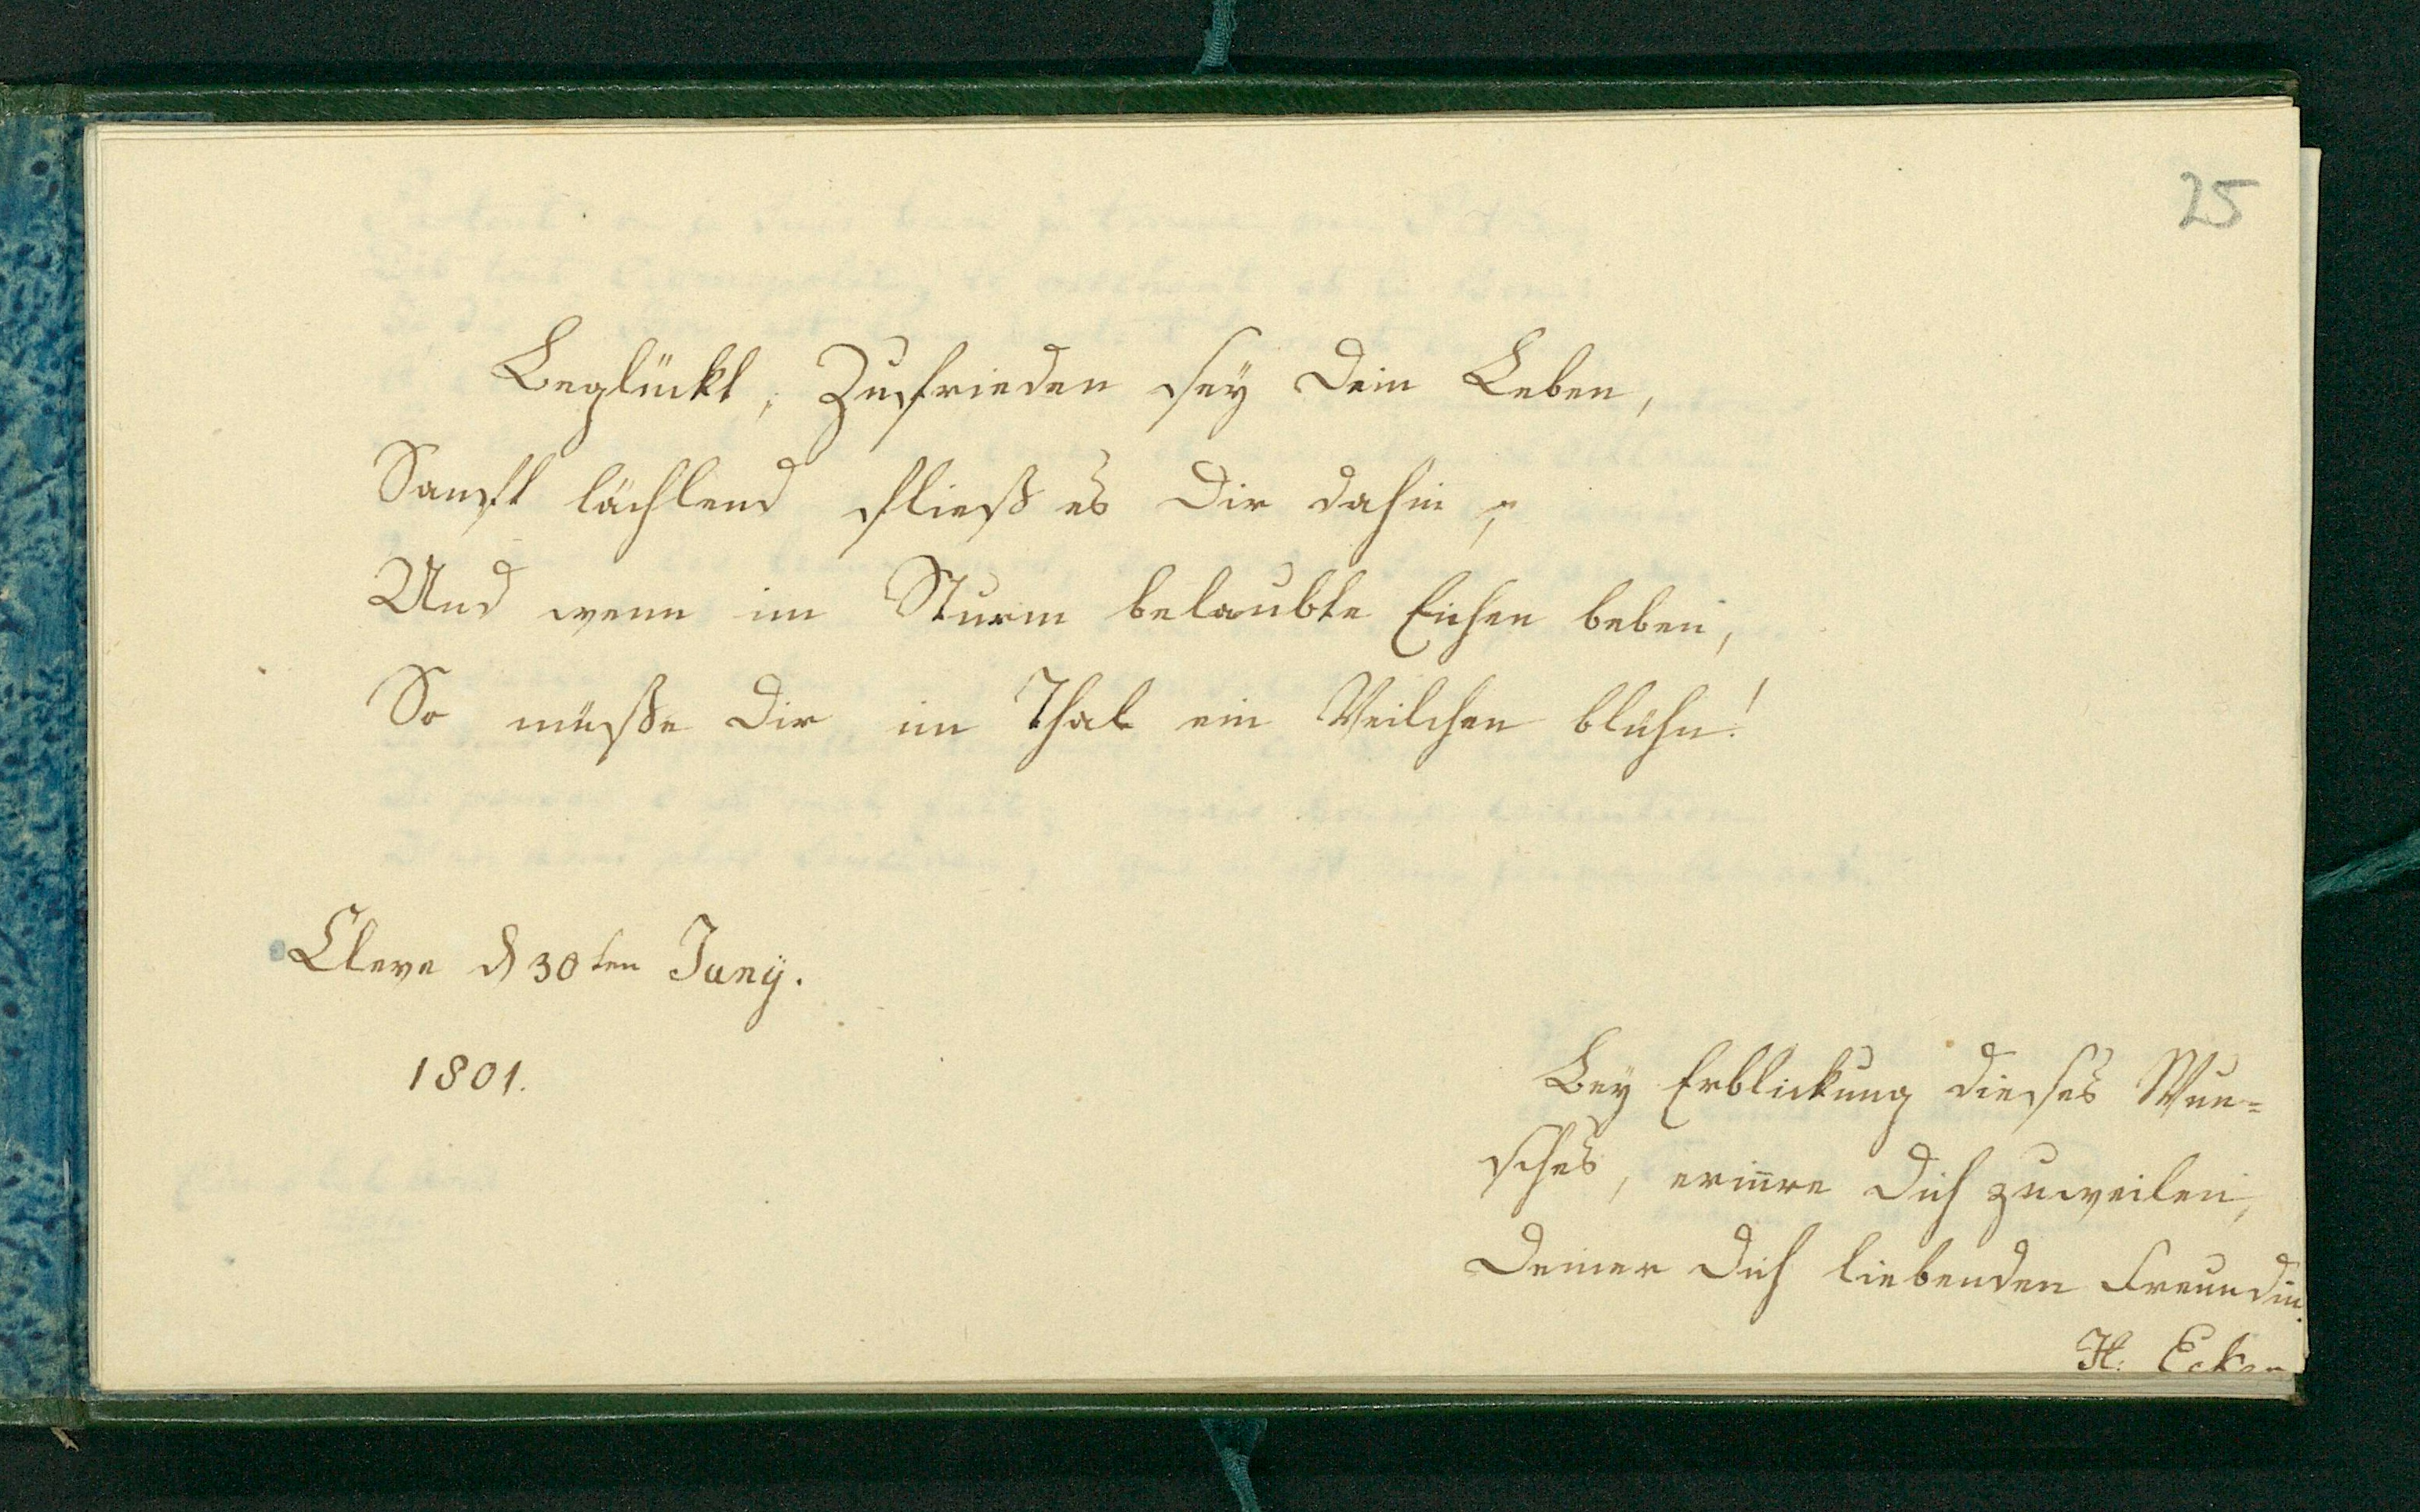 25
Beglückt, Zufrieden sey Dein Leben,
Sanft lächlend fließ es Dir dahin,
Und wenn im Sturm belaubte Eichen beben,
So müße Dir im Thal ein Veilchen blühn!
Cleve d 30ten Juny.
1801.
Bey Erblickung dieses Wun=
sches, erin̄re Dich zuweilen,
Deiner Dich liebenden Freundin.
H: Ecker